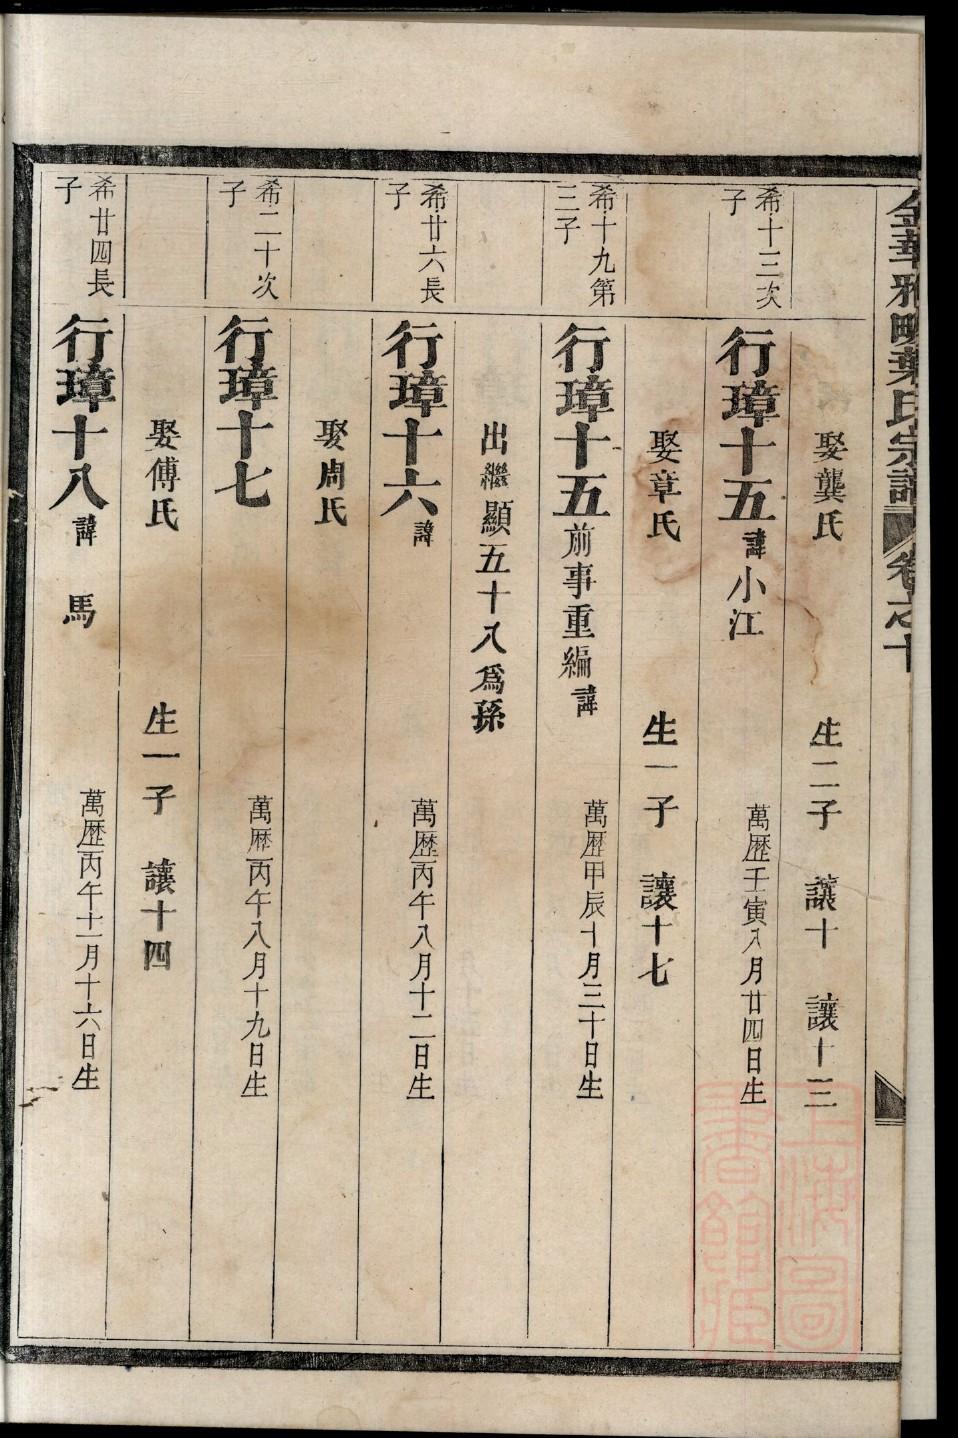 金華雅畈葉氏宗譜 卷之十
娶龔氏 生二子 讓十 讓十三
希十三次子
行璋十五 諱小江 萬歷壬寅八月廿四日生
娶章氏 生一子 讓十七
希十九第三子
行璋十五 前事重編 諱 萬歷甲辰十月三十日生
出繼顯五十八爲孫
希廿六長子
行璋十六 諱 萬歷丙午八月十二日生
娶周氏
希二十次子
行璋十七 萬歷丙午八月十九日生
娶傅氏 生一子 讓十四
希廿四長子
行璋十八 諱 馬 萬歷丙午十一月十六日生
上海圖書館藏